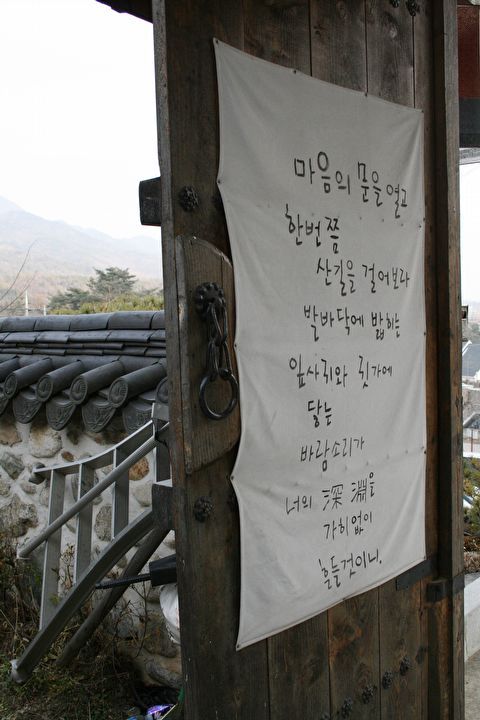 마음의 문을 열고
한번쯤
산길을 걸어보라
발바닥에 밟히는
잎사귀와 귓가에
닿는
바람소리가
너의 深淵을
가히없이
흔들것이니.